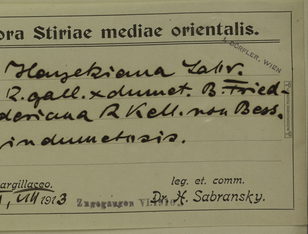 ora Stiriae mediae orientalis.
I. DÖRFLER, WIEN
Hayekiana Sabr.
R. gall. x dumet. B. Fried-
dericiana R Kell. non Bess.
in dumetosis.
argillaceo.
VIII 1913
leg. et comm.
Dr. H. Sabransky.
Zugegangen VI.